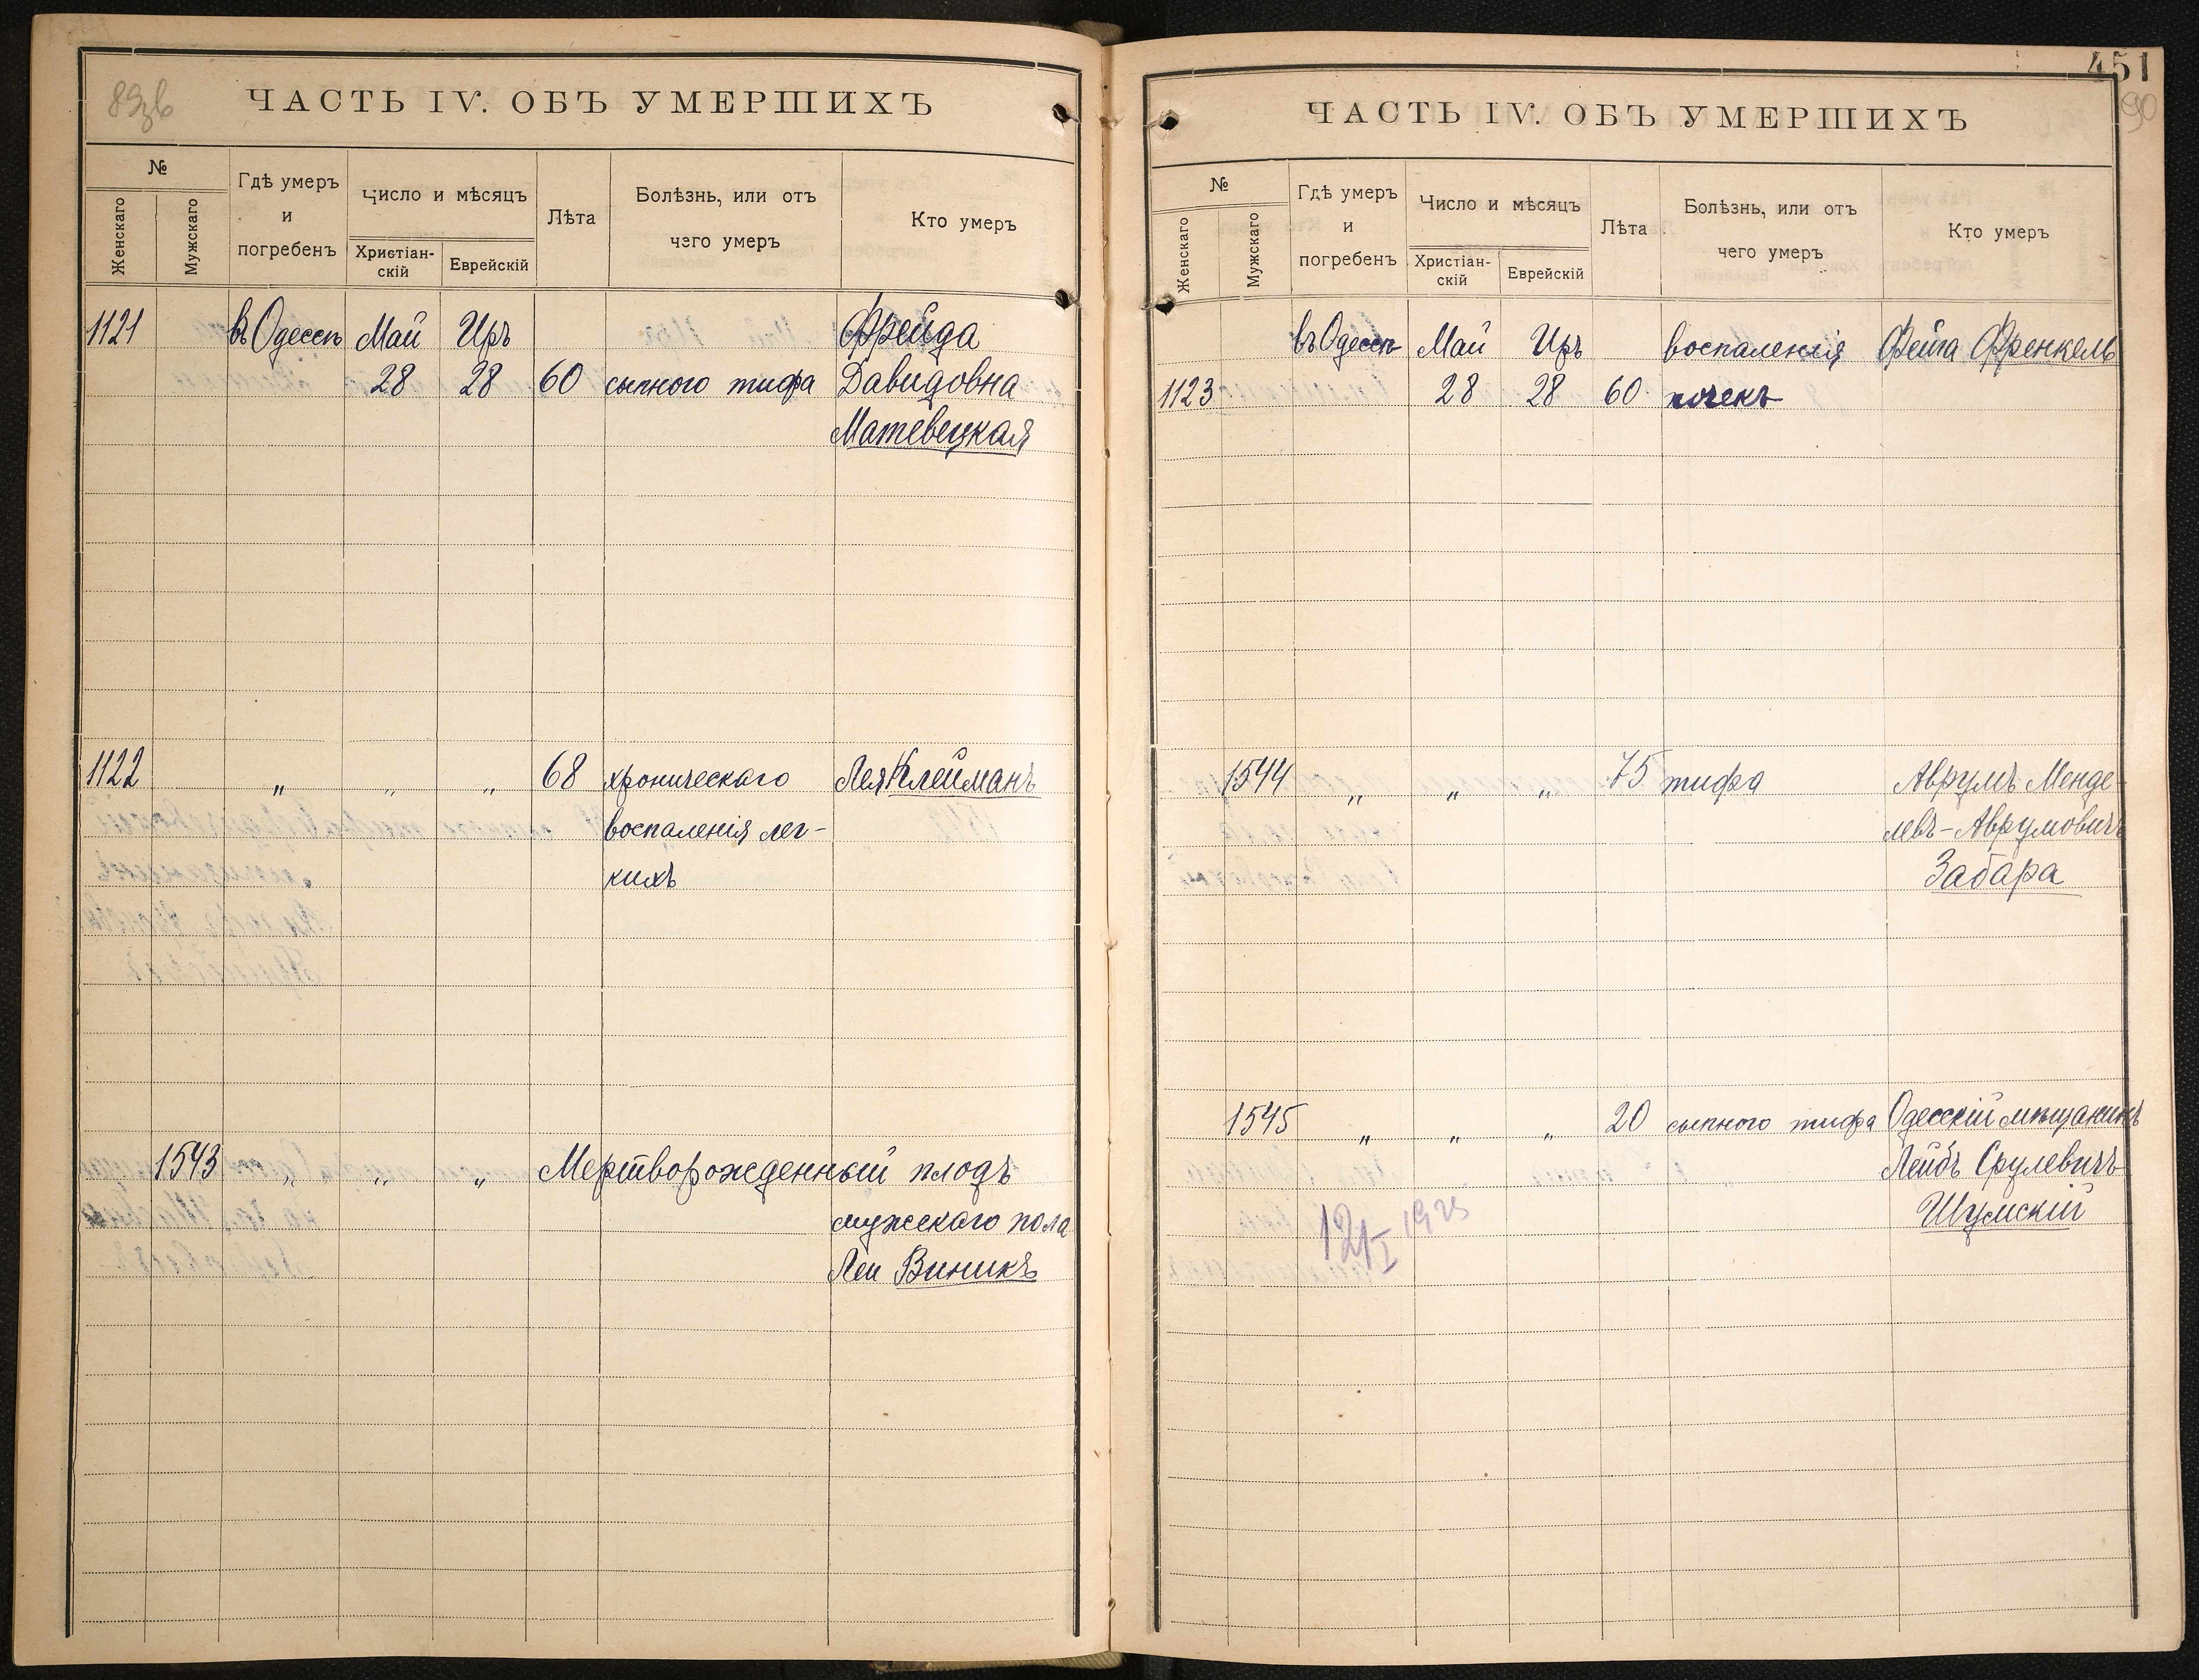 ЧАСТЬ IV. ОБЪ УМЕРШИХЪ
№
Женскаго
Мужскаго
Гдѣ умеръ
и
погребенъ
Число и мѣсяцъ
Христіан-
скій
Еврейскій
Лѣта
Болѣзнь, или отъ
чего умеръ
Кто умеръ
1121 въ Одессѣ Май Иръ Фрейда
28 28 60 сыпного тифа Давидовна
Матевецкая
1122 " " " 68 хроническаго Лея Клейманъ
воспаленія лег-
кихъ
1543 " " " Мертворожденный плодъ
мужскаго пола
Леи Виникъ
451
90
ЧАСТЬ IV. ОБЪ УМЕРШИХЪ
№
Женскаго
Мужскаго
Гдѣ умеръ
и
погребенъ
Число и мѣсяцъ
Христіан-
скій
Еврейскій
Лѣта
Болѣзнь, или отъ
чего умеръ
Кто умеръ
въ Одессѣ Май Иръ воспаленія Фейга Френкель
1123 28 28 60 почекъ
1544 " " " 75 тифа Аврумъ Менде-
левъ-Аврумовичъ
Забара
1545 " " " 20 сыпного тифа Одесскій мѣщанинъ
Лейбъ Срулевичъ
Шумскій